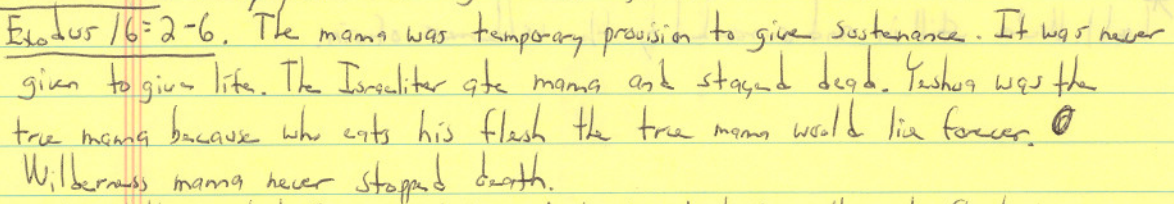 Exodus 16:2-6. The mana was temporary provision to give sustenance. It was never
given to give life. The Israelites ate mana and stayed dead. Yeshua was the
true manna because who eats his flesh the true mana would live forever.
Wilderness manna never stopped death.